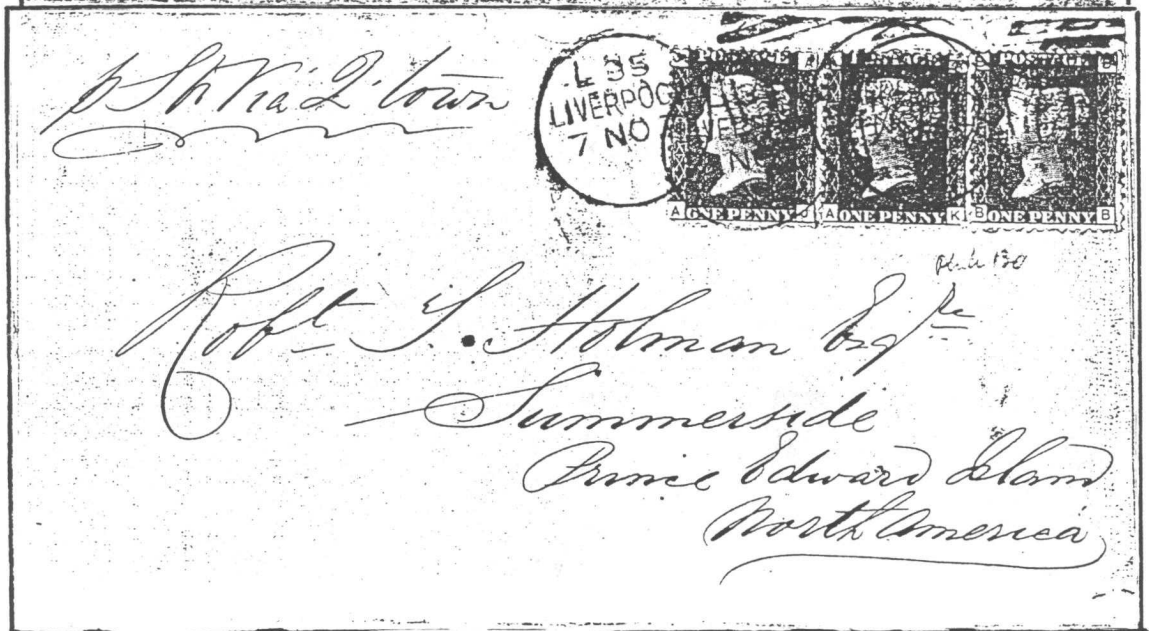 p Str Via Q'town
L 35
LIVERPOO
7 NO
POSTAGE
POSTAGE
A ONE PENNY J
A ONE PENNY K
B ONE PENNY B
Plate 130
Robt. S. Holman Esqre
Summerside
Prince Edward Island
North America